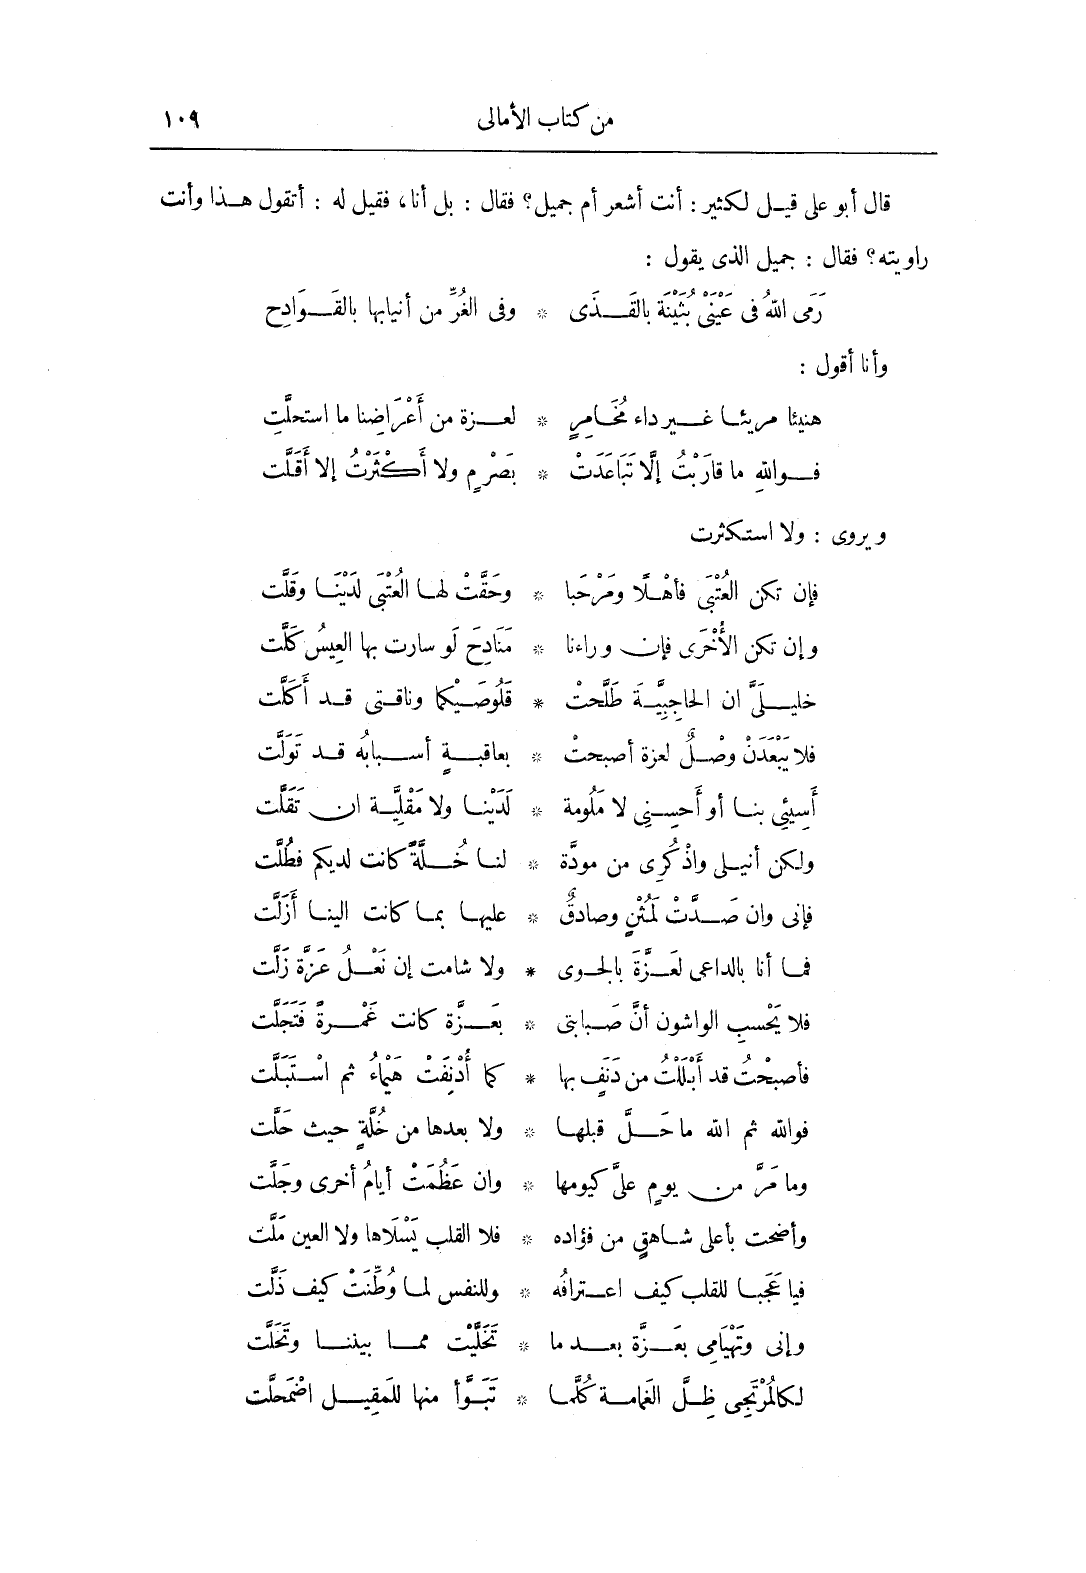 من كتاب الأمالى ١٠٩
قال أبو على قيل لكثير : أنت أشعر أم جميل؟ فقال : بل أنا، فقيل له : أتقول هذا وأنت
راويته؟ فقال : جميل الذى يقول :
رَمَى اللّهُ فى عَيْنَىْ بُثَيْنَةَ بالقَذَى * وفى الغُرِّ من أنيابها بالقَوَادِح
وأنا أقول :
هنيئا مريئا غير داء مُخَامِرٍ * لعزة من أَعْرَاضِنا ما استحلَّتِ
فوالله ما قارَبْتُ إلَّا تَبَاعَدَتْ * بصَرْمٍ ولا أَكْثَرْتُ إلا أَقَلَّت
ويروى : ولا استكثرت
فإن تكن العُتْبَى فأهْلًا ومَرْحَبا * وحَقَّتْ لها العُتْبَى لَدَيْنَا وقَلَّت
وإن تكن الأُخْرَى فإن وراءنا * مَنَادِحَ لَو سارت بها العِيسُ كَلَّت
خليلَىَّ ان الحاجبِيَّةَ طَلَّحتْ * قَلُوصَيْكما وناقتى قد أَكَلَّت
فلا يَبْعَدَنْ وصْلٌ لعزة أصبحتْ * بعاقبةٍ أسبابُه قد تَوَلَّت
أَسِيئِى بنا أو أَحسِنِى لا مَلُومة * لَدَيْنا ولا مَقْلِيَّة ان تَقَلَّت
ولكن أنيلى واذْكُرِى من مودَّة * لنا خُلَّةً كانت لديكم فطُلَّت
فإنى وان صَدَّتْ لَمُثْنٍ وصادقٌ * عليها بما كانت الينا أَزَلَّت
فما أنا بالداعى لعَزَّةَ بالجوى * ولا شامت إن نَعْلُ عَزَّةَ زَلَّت
فلا يَحْسبِ الواشون أنَّ صَبابتى * بعَزَّة كانت غَمْرةً فَتَجَلَّت
فأصبحْتُ قد أَبْلَلْتُ من دَنَفٍ بها * كما أُدْنِفَتْ هَيْمَاءُ ثم اسْتَبَلَّت
فوالله ثم الله ما حَلَّ قبلها * ولا بعدها من خُلَّةٍ حيث حَلَّت
وما مَرَّ من يومٍ علىَّ كيومها * وان عَظُمَتْ أيامُ أخرى وجَلَّت
وأضحت بأعلى شاهقٍ من فؤاده * فلا القلب يَسْلَاها ولا العين مَلَّت
فيا عَجَبا للقلب كيف اعترافُه * وللنفس لما وُطِّنَتْ كيف ذَلَّت
وإنى وتَهْيَامِى بعَزَّة بعد ما * تَخَلَّيْت مما بيننا وتَخَلَّت
لكالمُرْتَجِى ظِلَّ الغَمامة كُلَّما * تَبَوَّأ منها للمَقِيل اضْمَحلَّت